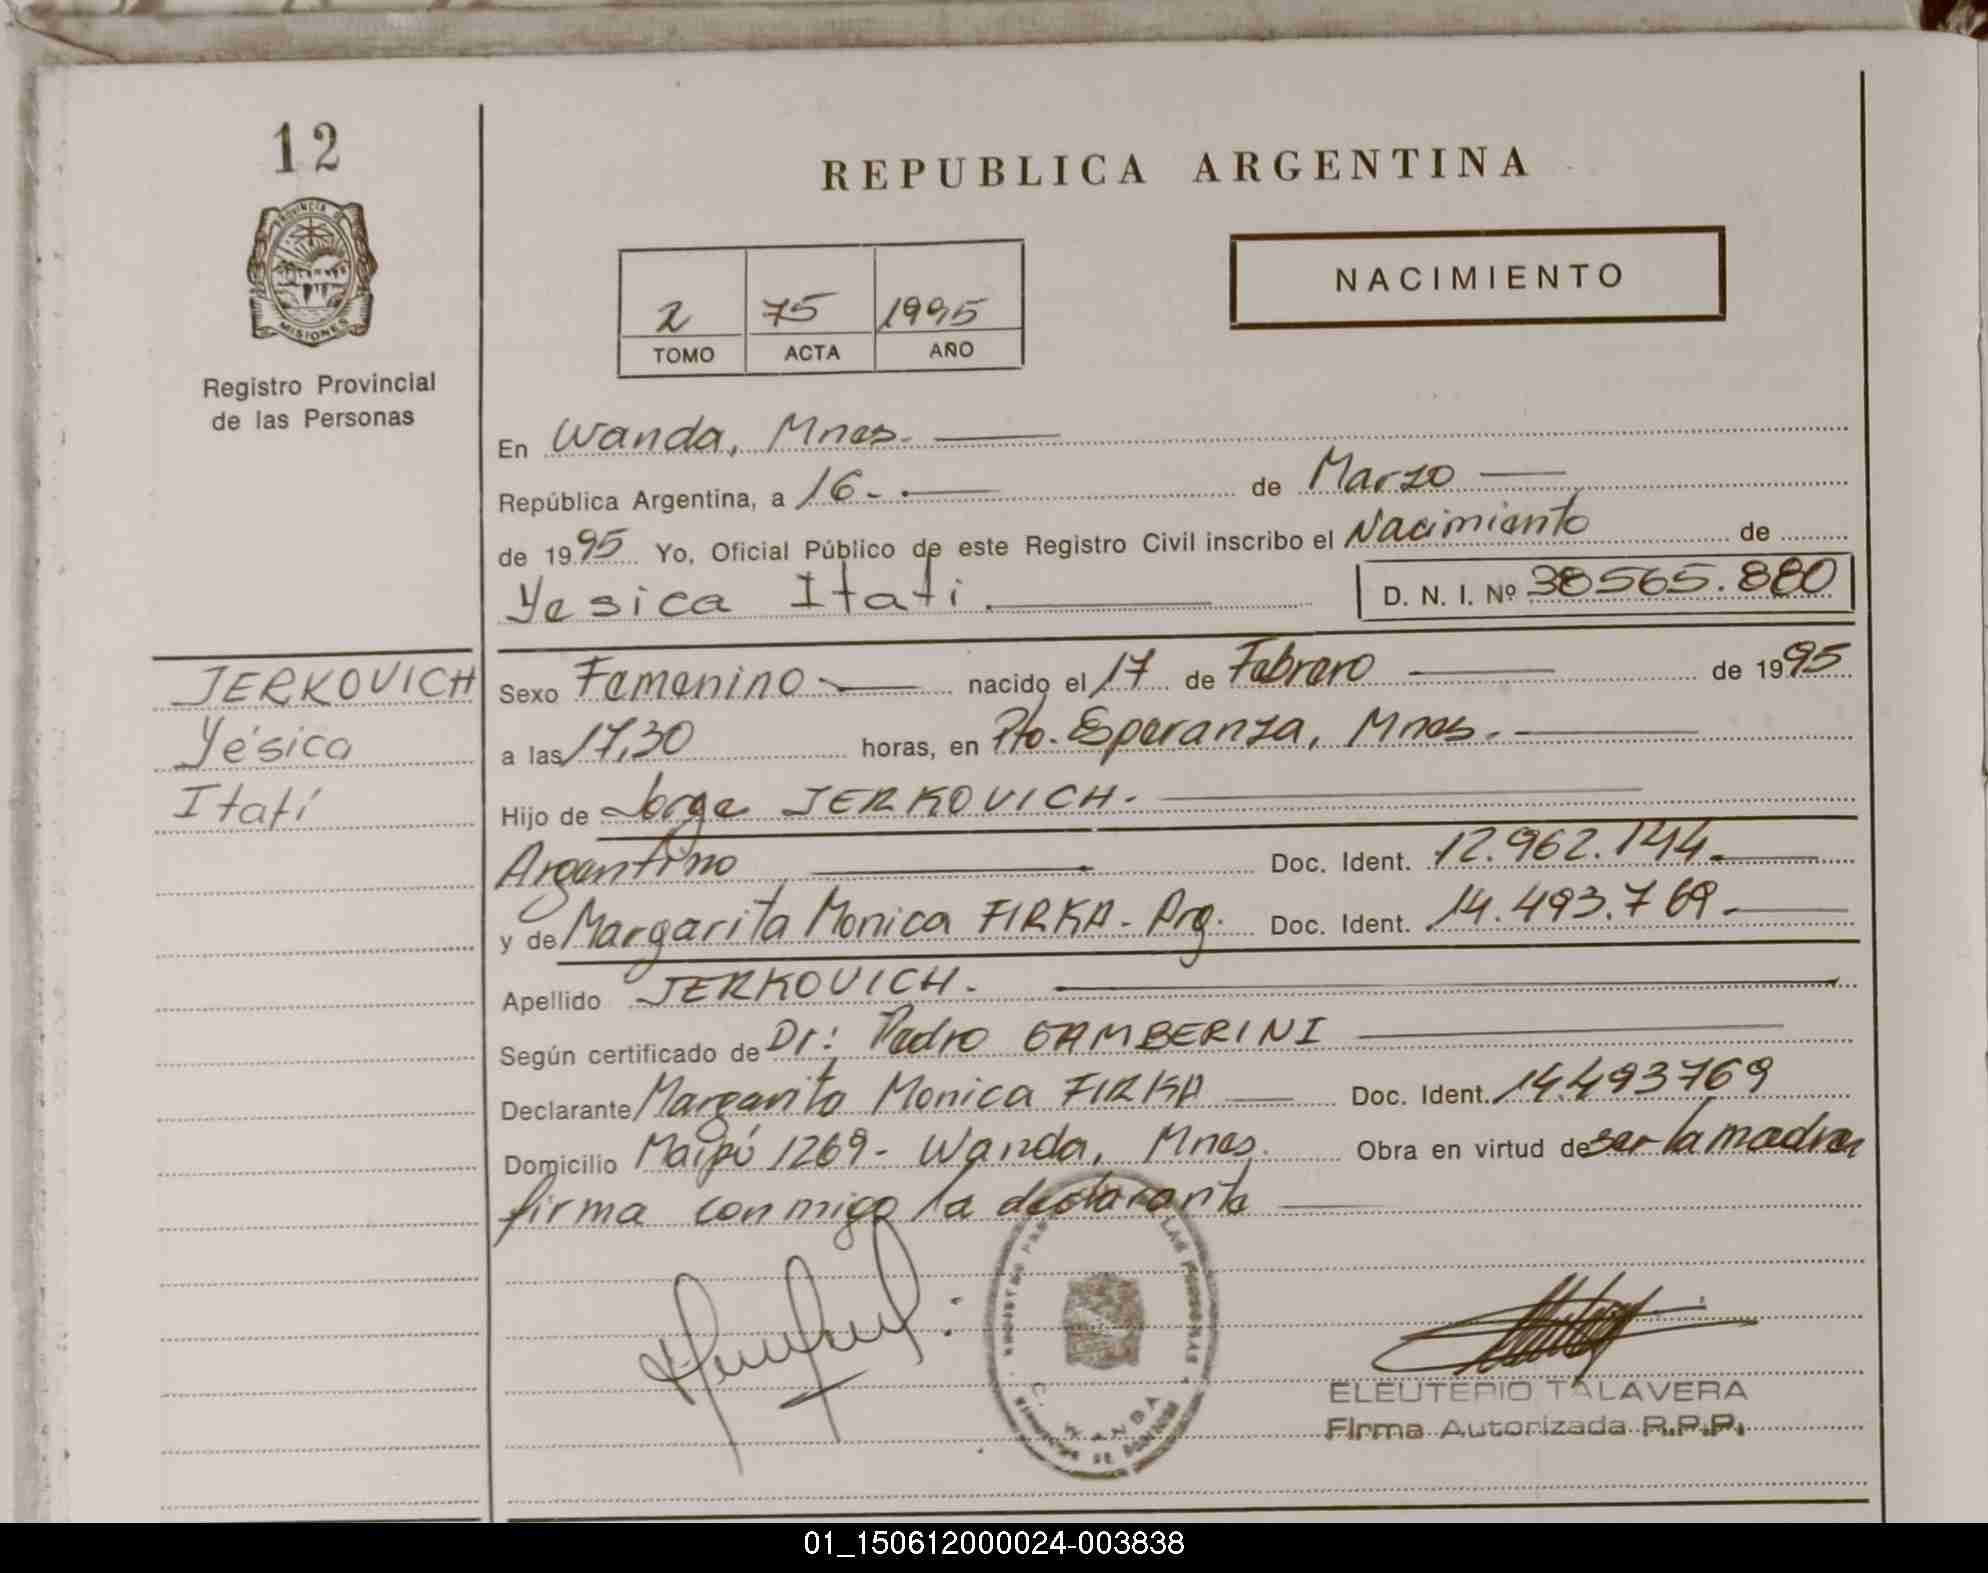 12
PROVINCIA DE
MISIONES
Registro Provincial
de las Personas
REPUBLICA ARGENTINA
NACIMIENTO
2 75 1995
TOMO ACTA AÑO
En Wanda, Mnes.
República Argentina, a 16 de Marzo
de 1995 Yo, Oficial Público de este Registro Civil inscribo el Nacimiento de
Yesica Itati. D. N. I. Nº 38565.880
JERKOVICH
Yésica
Itatí
Sexo Femenino nacido el 17 de Febrero de 1995
a las 17,30 horas, en Pto. Esperanza, Mnes.
Hijo de Jorge JERKOVICH.
Argentino Doc. Ident. 12.962.144.
y de Margarita Monica FIRKA - Arg. Doc. Ident. 14.493.769.
Apellido JERKOVICH.
Según certificado de Dr: Pedro GAMBERINI
Declarante Margarita Monica FIRKA Doc. Ident. 14.493769
Domicilio Maipú 1269 - Wanda, Mnes. Obra en virtud de ser la madre
firma conmigo la declarante
LAS PERSONAS
WANDA
ELEUTERIO TALAVERA
Firma Autorizada R.P.P.
01_150612000024-003838